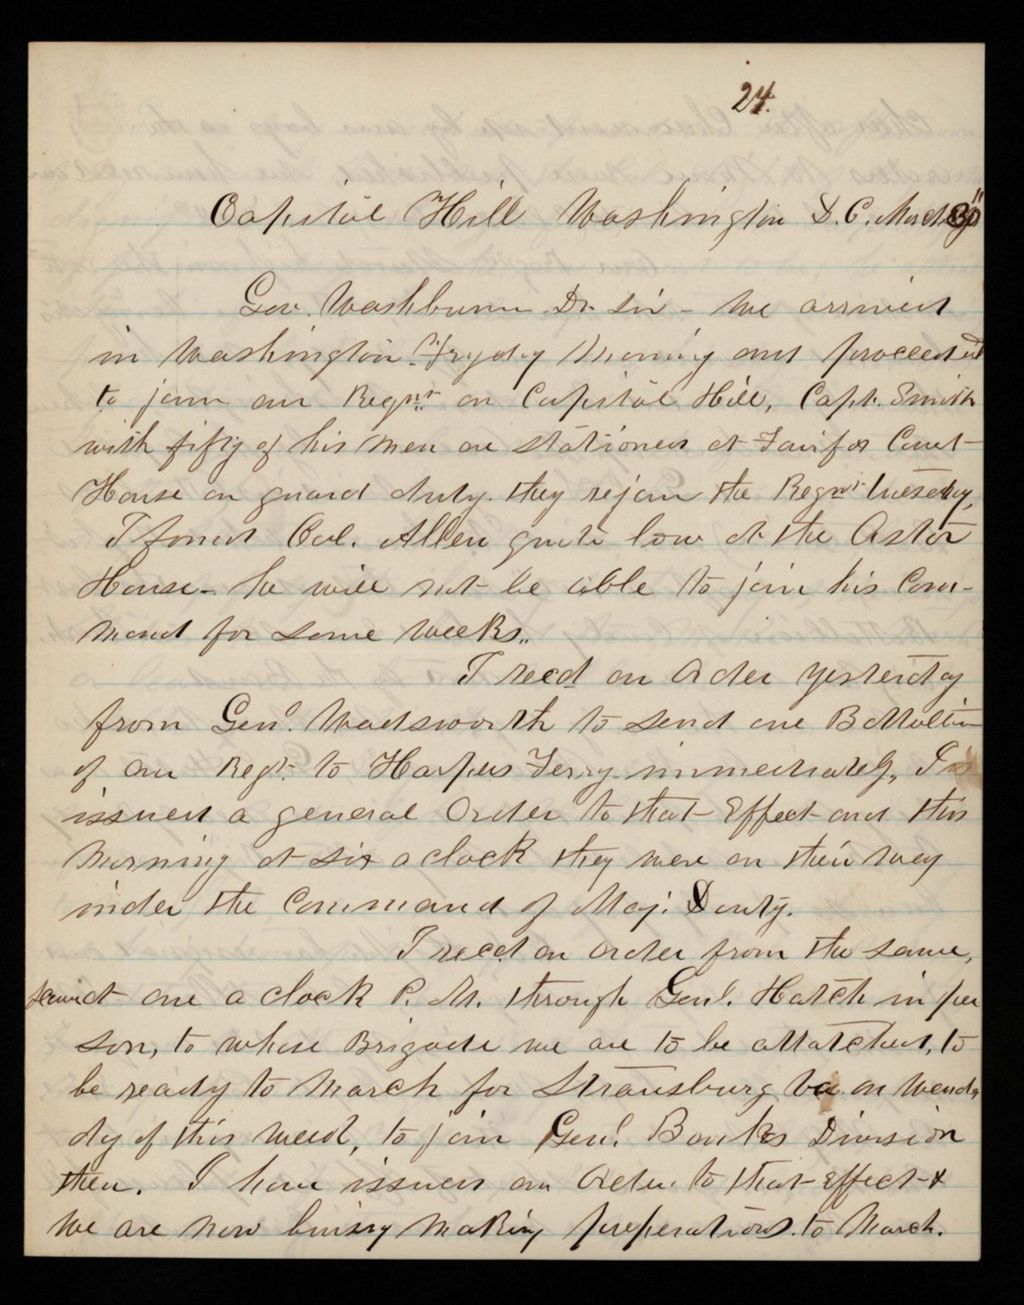 24.
Capitol Hill Washington D.C. March 30"
Gov. Washburn Dr. Sir - We arrived
in Washington Fryday Morning and proceeded
to join our Regmt on Capitol Hill, Capt. Smith
with fifty of his men are stationed at Fairfax Court
House on guard duty. they rejoin the Regmt Tuesday,
I found Col. Allen quite low at the Astor
House - he will not be able to join his Com-
mand for some weeks..
I recd an order yesterday
from Genl. Wadsworth to send one Battalion
of our Regt. to Harpers Ferry immediately, I
issued a general Order to that Effect and this
Morning at six oclock they were on their way
under the Command of Maj. Douty.
I recd an order from the same,
at one oclock P. M. through Genl. Hatch in per
son, to whose Brigade we are to be attatched, to
be ready to March for Strausburg Va on Wends
dy of this week, to join Genl. Banks Division
then. I have issued an Order to that Effect &
We are now buisy Making preperations to March.